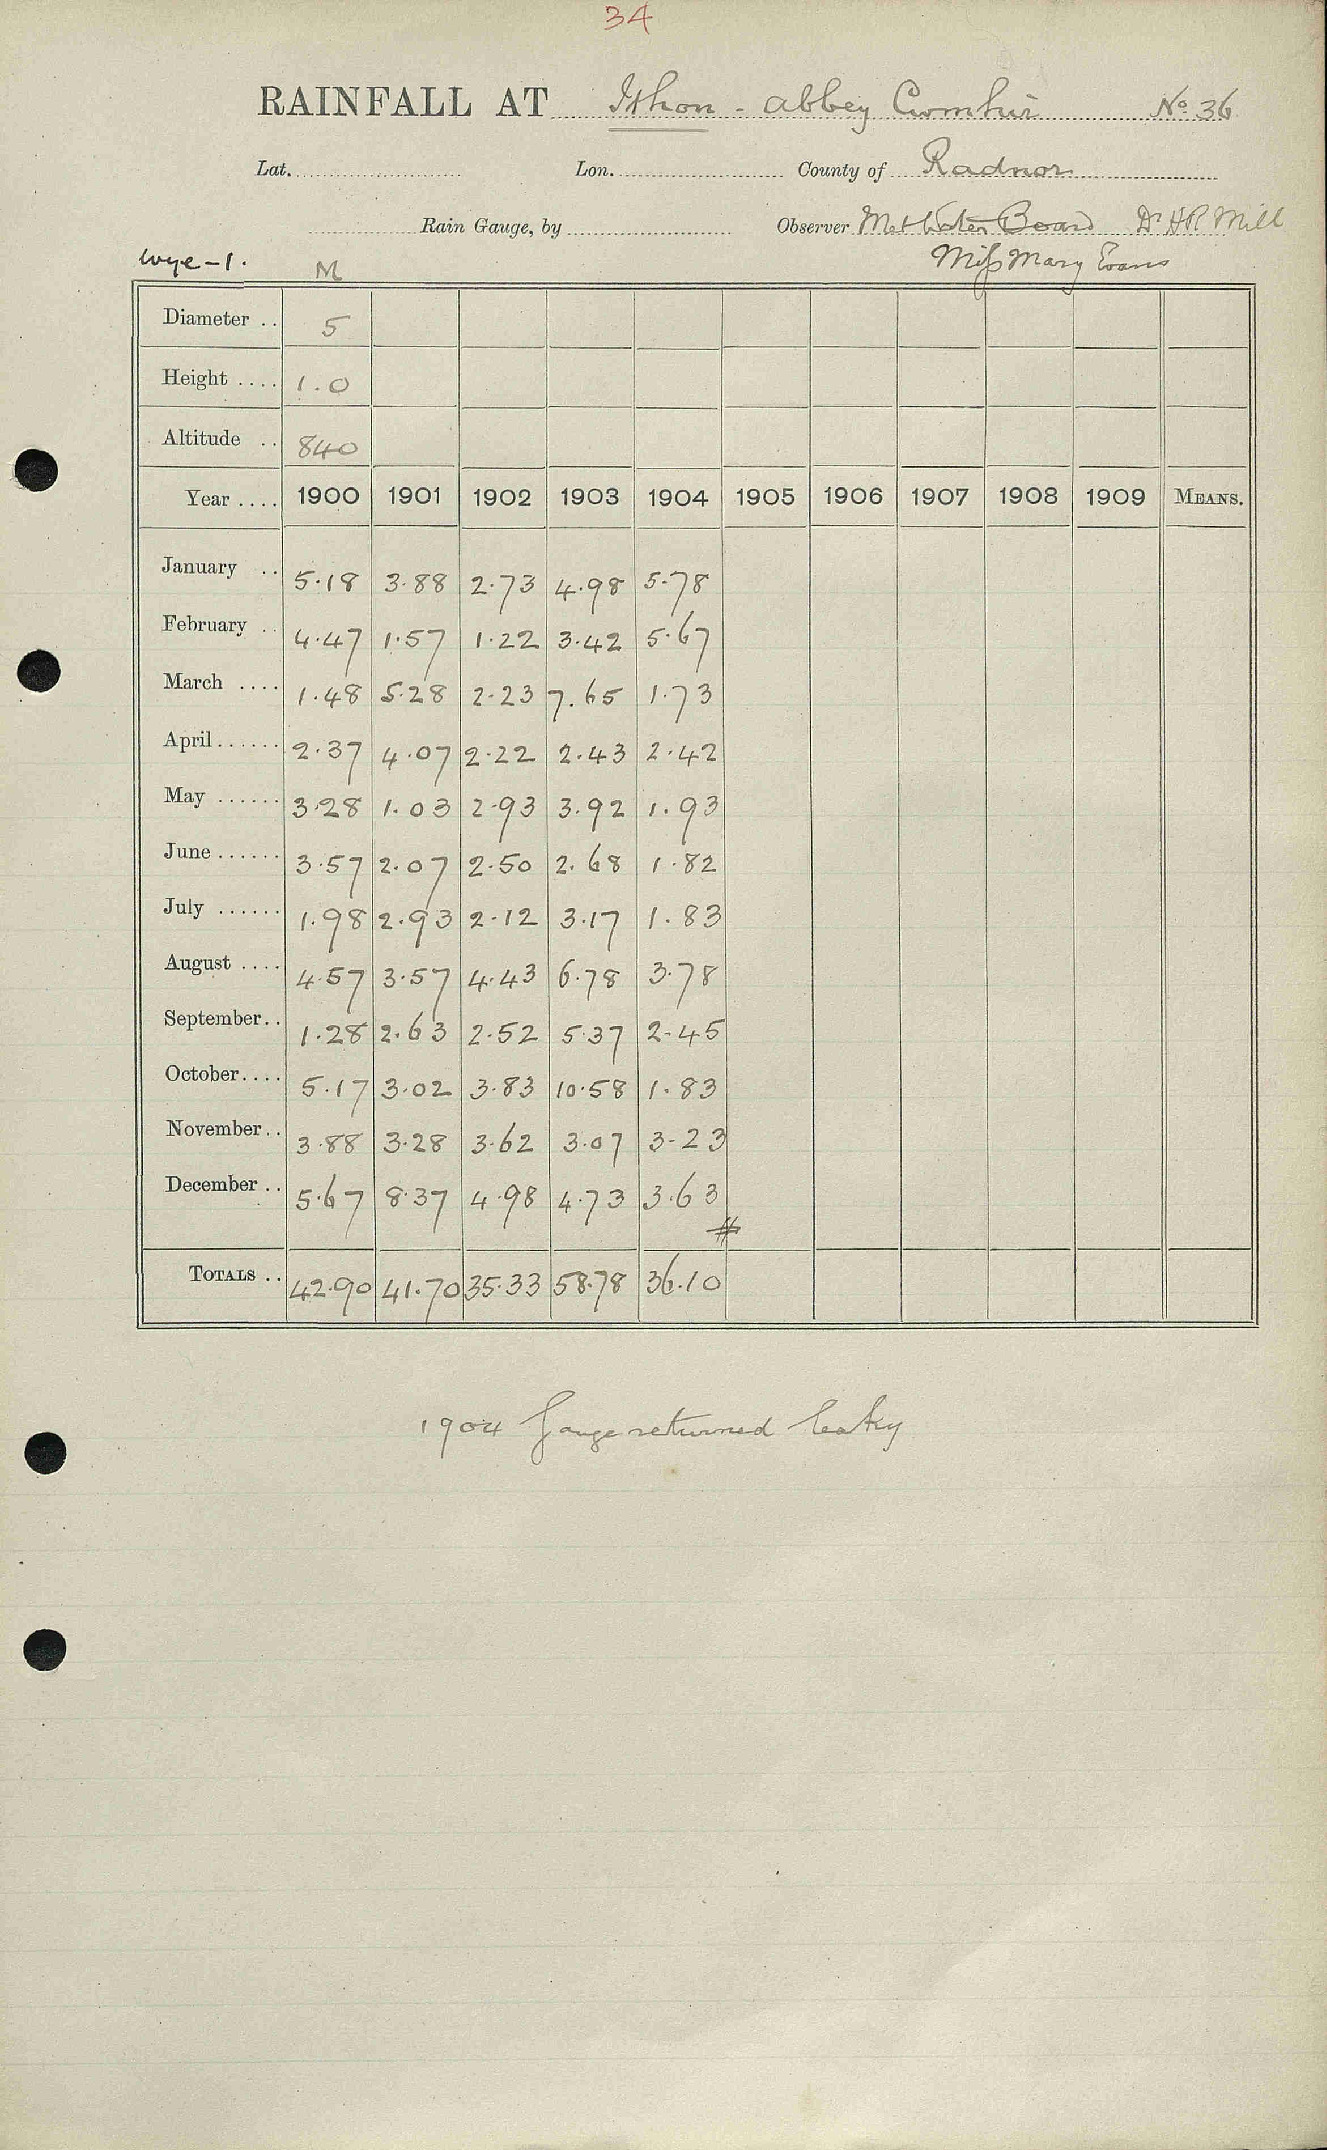 34
RAINFALL AT Ithon - Abbey Cwmhir No. 36
Lat. Lon. County of Radnor
Rain Gauge, by Observer Met Water Board Dr HR Mill
Wye - 1. M Miss Mary Evans
Diameter .. 5
Height .... 1.0
Altitude .. 840
Year .... 1900 1901 1902 1903 1904 1905 1906 1907 1908 1909 MEANS.
January .. 5.18 3.88 2.73 4.98 5.78
February .. 4.47 1.57 1.22 3.42 5.67
March .... 1.48 5.28 2.23 7.65 1.73
April ...... 2.37 4.07 2.22 2.43 2.42
May ...... 3.28 1.03 2.93 3.92 1.93
June ...... 3.57 2.07 2.50 2.68 1.82
July ...... 1.98 2.93 2.12 3.17 1.83
August .... 4.57 3.57 4.43 6.78 3.78
September.. 1.28 2.63 2.52 5.37 2.45
October.... 5.17 3.02 3.83 10.58 1.83
November.. 3.88 3.28 3.62 3.07 3.23
December .. 5.67 8.37 4.98 4.73 3.63
#
TOTALS .. 42.90 41.70 35.33 58.78 36.10
1904 Gauge returned leaky